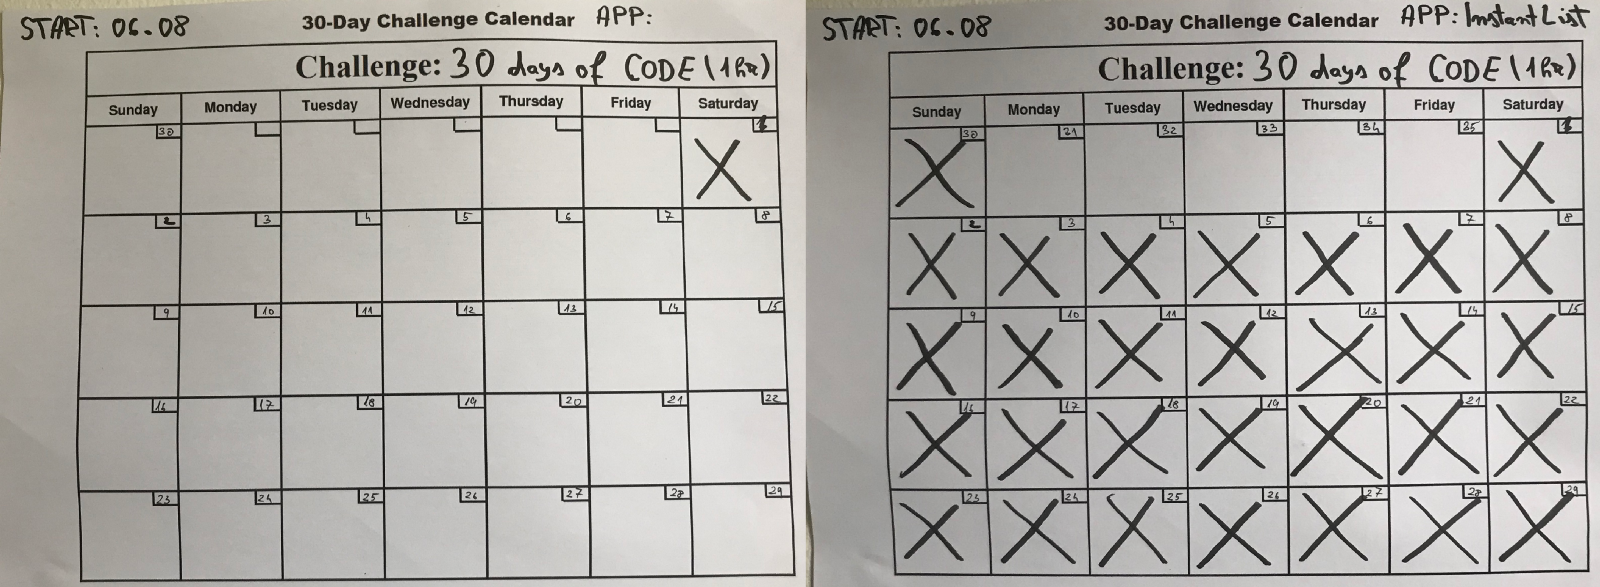 START: 06.08
30-Day Challenge Calendar
APP:
Challenge: 30 days of CODE (1hr)
Sunday Monday Tuesday Wednesday Thursday Friday Saturday
30 1
2 3 4 5 6 7 8
9 10 11 12 13 14 15
16 17 18 19 20 21 22
23 24 25 26 27 28 29
START: 06.08
30-Day Challenge Calendar
APP: Instant List
Challenge: 30 days of CODE (1hr)
Sunday Monday Tuesday Wednesday Thursday Friday Saturday
30 31 32 33 34 35 1
2 3 4 5 6 7 8
9 10 11 12 13 14 15
16 17 18 19 20 21 22
23 24 25 26 27 28 29